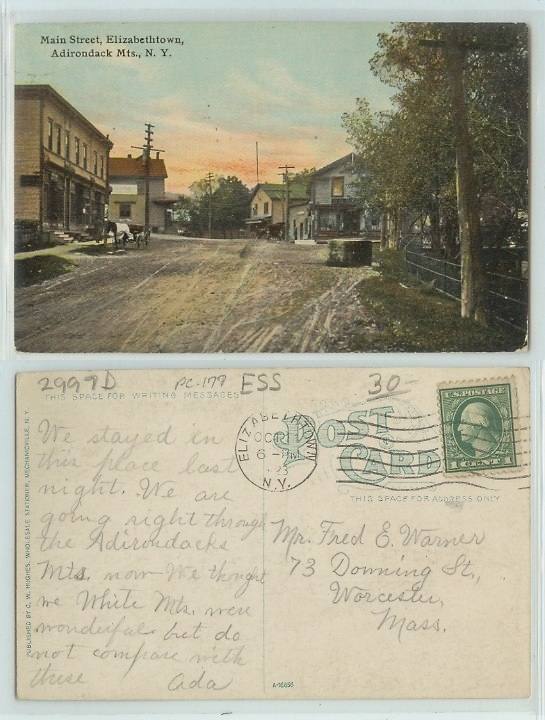 Main Street, Elizabethtown,
Adirondack Mts., N. Y.
2997D PC-177 ESS 30-
THIS SPACE FOR WRITING MESSAGES
POST
CARD
THIS SPACE FOR ADDRESS ONLY
ELIZABETHTOWN
OCT
6-PM
N.Y.
U.S. POSTAGE
1 CENT 1
PUBLISHED BY C. W. HUGHES, WHOLESALE STATIONER, MECHANICVILLE, N. Y.
We stayed in
this place last
night. We are
going right through
the Adirondacks
Mts. now We thought
we White Mts. were
wonderful but do
not compare with
these Ada
Mr. Fred E. Warner
73 Downing St,
Worcester,
Mass.